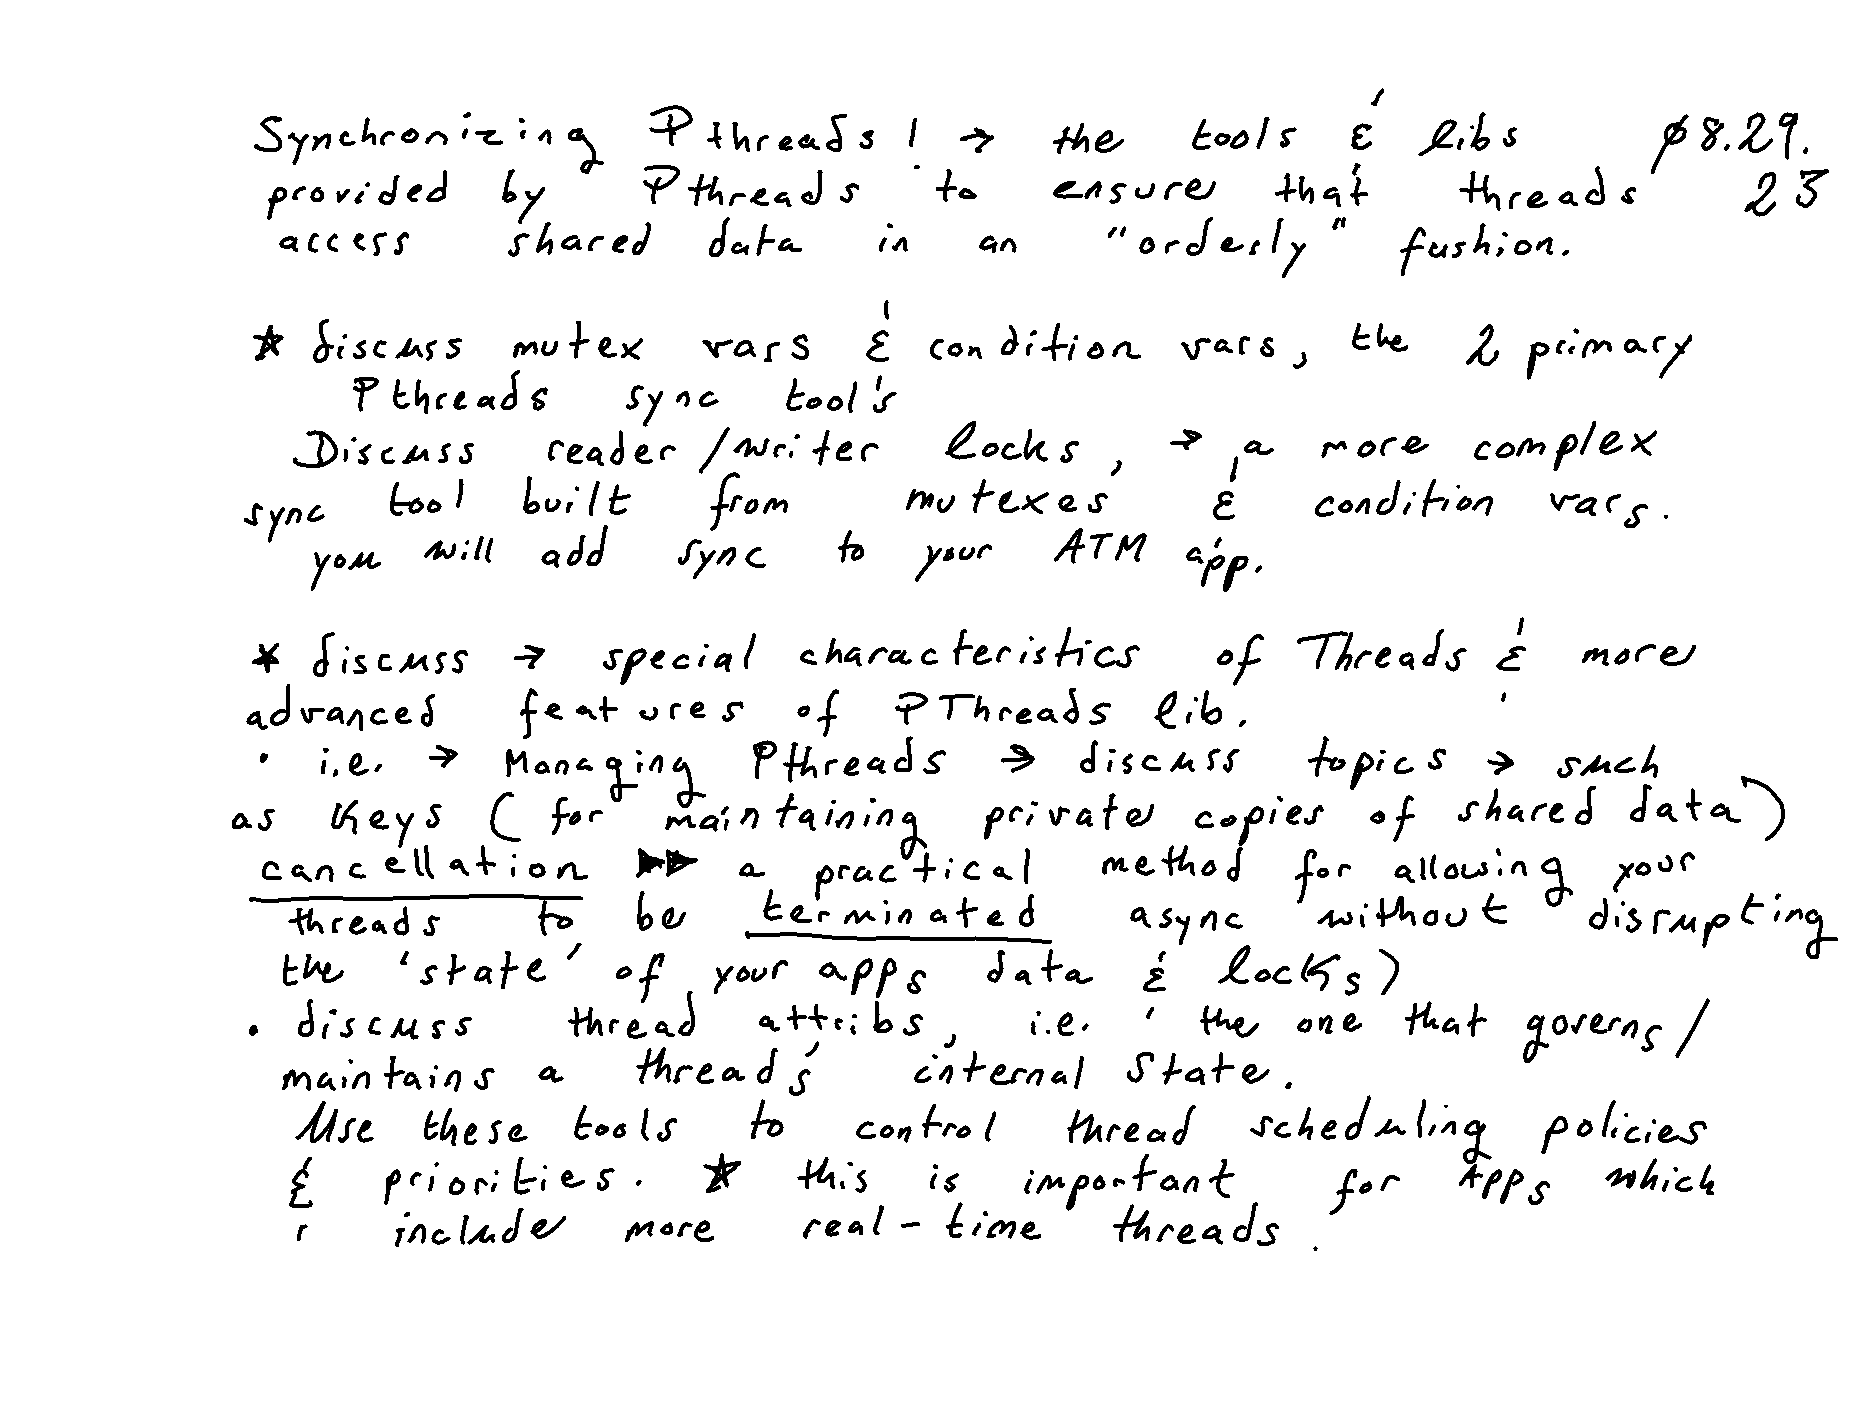 Synchronizing Pthreads! → the tools & libs ø8.29.
provided by Pthreads to ensure that threads 23
access shared data in an "orderly" fushion.
* discuss mutex vars & condition vars, the 2 primary
Pthreads sync tool's
Discuss reader/writer locks, → a more complex
sync tool built from mutexes & condition vars.
you will add sync to your ATM app.
* discuss → special characteristics of Threads & more
advanced features of PThreads lib.
• i.e. → Managing Pthreads → discuss topics → such
as Keys (for maintaining private copies of shared data)
cancellation ▶▶ a practical method for allowing your
threads to be terminated async without disrupting
the 'state' of your apps data & locks)
• discuss thread attribs, i.e. ' the one that governs/
maintains a thread's internal State.
Use these tools to control thread scheduling policies
& priorities. * this is important for Apps which
include more real-time threads.